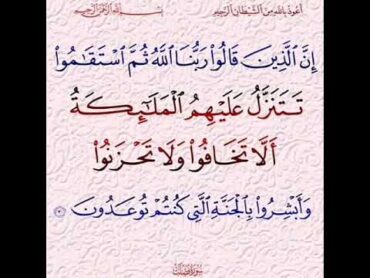 أعوذ بالله من الشيطان الرجيم
بسم الله الرحمن الرحيم
إِنَّ ٱلَّذِينَ قَالُوا۟ رَبُّنَا ٱللَّهُ ثُمَّ ٱسْتَقَٰمُوا۟
تَتَنَزَّلُ عَلَيْهِمُ ٱلْمَلَٰٓئِكَةُ
أَلَّا تَخَافُوا۟ وَلَا تَحْزَنُوا۟
وَأَبْشِرُوا۟ بِٱلْجَنَّةِ ٱلَّتِى كُنتُمْ تُوعَدُونَ
سورة فصلت